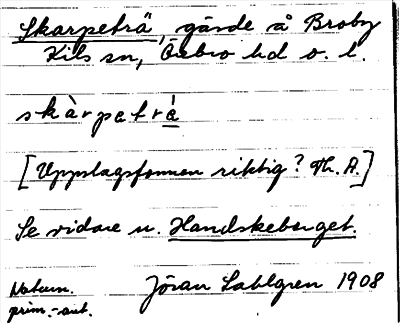 Skarpeträ, gärde å Broby
Kils sn, Örebro hd o. l.
skàrpetrá
[Uppslagsformen riktig? Th. A.]
Se vidare u. Handskeberget.
Natur.
prim.-ant.
Jöran Sahlgren 1908